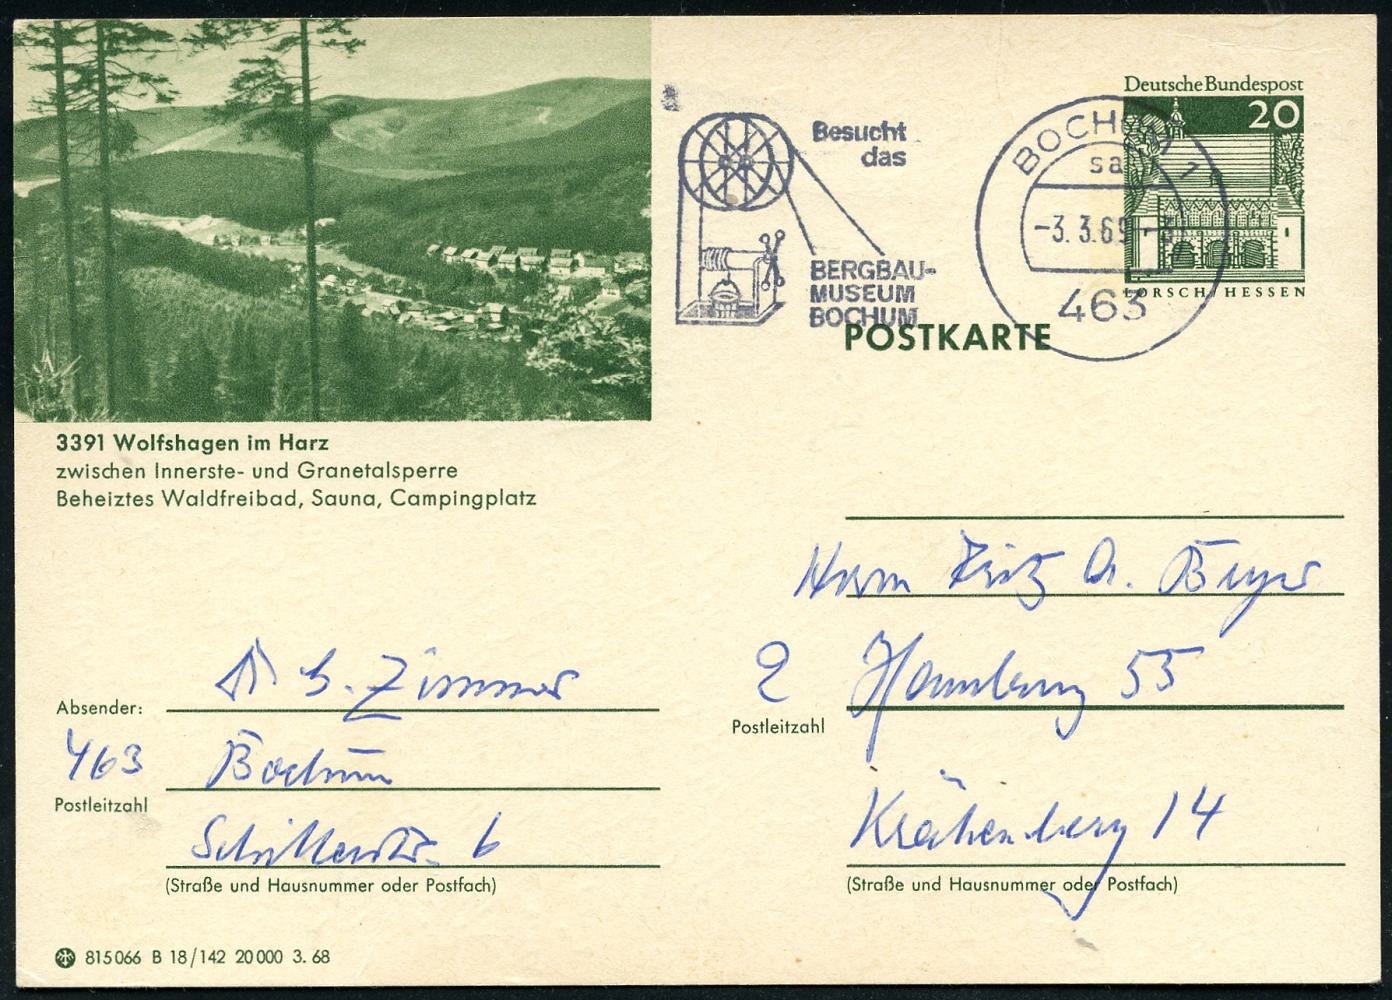 Deutsche Bundespost
20
LORSCH/HESSEN
Besucht
das
BERGBAU-
MUSEUM
BOCHUM
BOCHUM 1
sa
-3.3.69
463
POSTKARTE
3391 Wolfshagen im Harz
zwischen Innerste- und Granetalsperre
Beheiztes Waldfreibad, Sauna, Campingplatz
Herrn Fritz A. Beyer
2 Hamburg 55
Postleitzahl
Krähenberg 14
(Straße und Hausnummer oder Postfach)
Zimmer
Absender:
463 Bochum
Postleitzahl
Schillerstr. 6
(Straße und Hausnummer oder Postfach)
815066 B 18/142 20000 3. 68